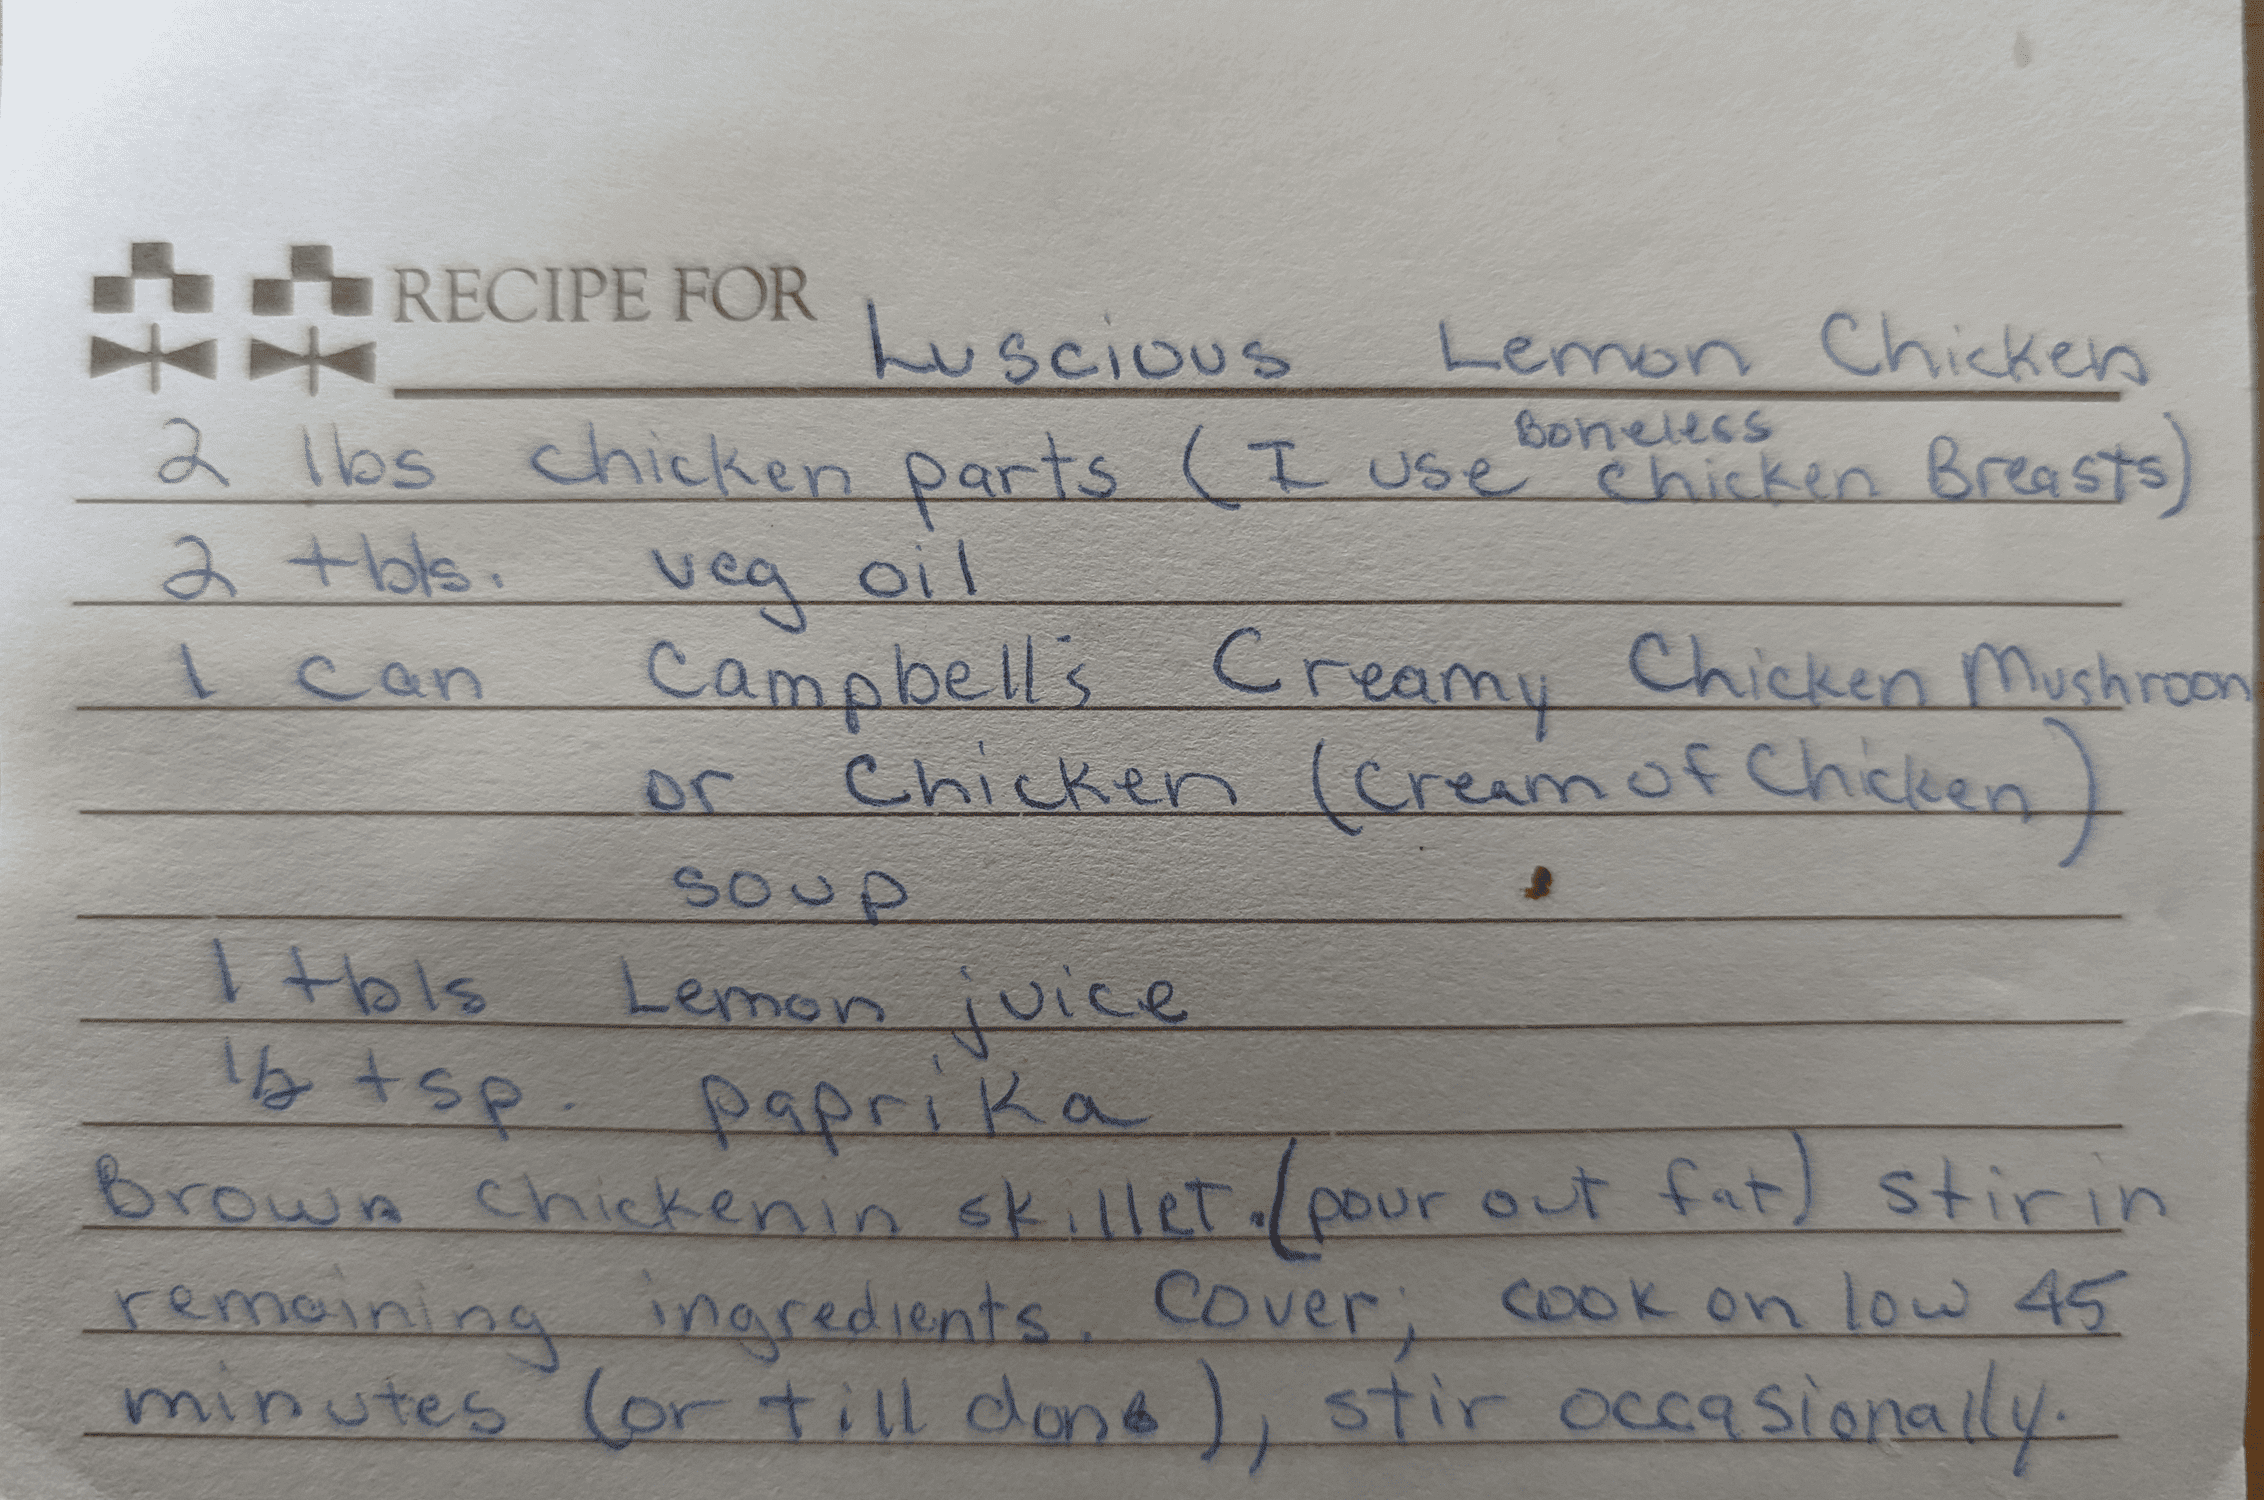 RECIPE FOR Luscious Lemon Chicken
2 lbs chicken parts (I use Boneless chicken Breasts)
2 tbls. veg oil
1 can Campbell's Creamy Chicken Mushroom
or Chicken (Cream of Chicken)
soup
1 tbls Lemon juice
1/2 tsp. paprika
Brown chicken in skillet. (pour out fat) stir in
remaining ingredients. Cover; cook on low 45
minutes (or till done), stir occasionally.